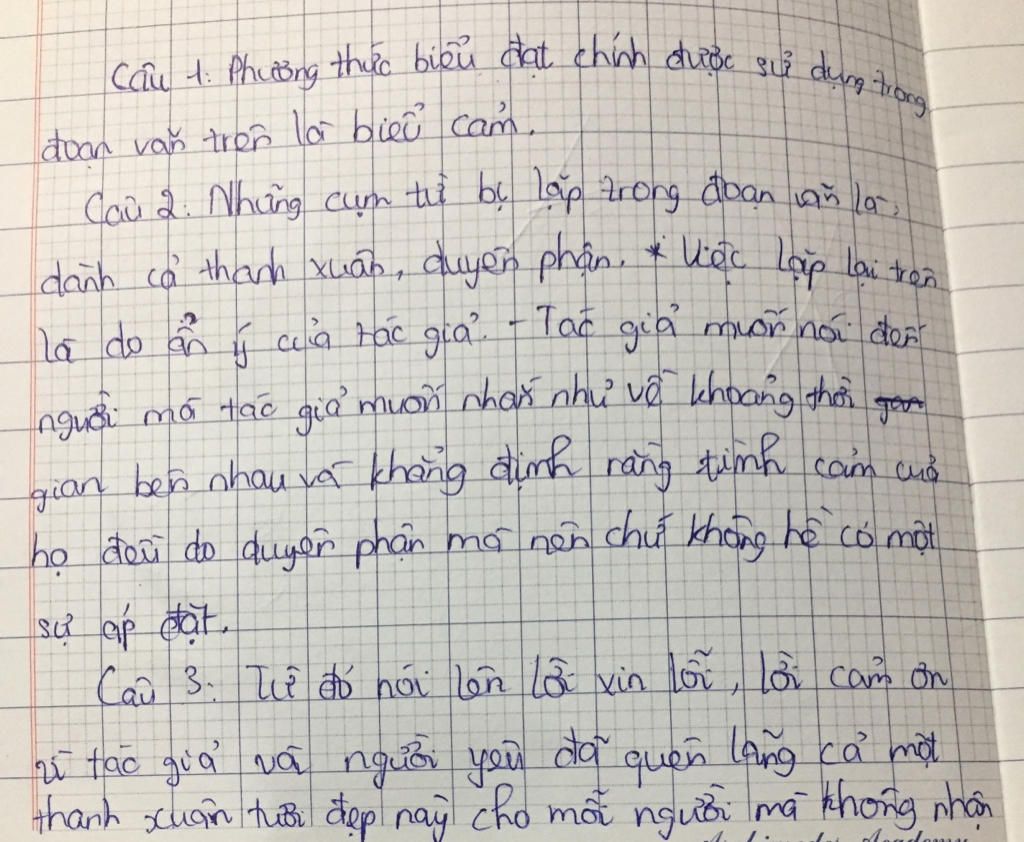 Câu 1: Phương thức biểu đạt chính được sử dụng trong
đoạn văn trên là biểu cảm.
Câu 2: Những cụm từ bị lặp trong đoạn văn là:
dành cả thanh xuân, duyên phận. * Việc lặp lại trên
là do ẩn ý của tác giả. - Tác giả muốn nói đến
người mà tác giả muốn nhắn nhủ về khoảng thời
gian bên nhau và khẳng định rằng tình cảm của
họ đều do duyên phận mà nên chứ không hề có một
sự áp đặt.
Câu 3: Từ đó nói lên lời xin lỗi, lời cảm ơn
vì tác giả và người yêu đã quên lãng cả một
thanh xuân tươi đẹp này cho một người mà không nhận